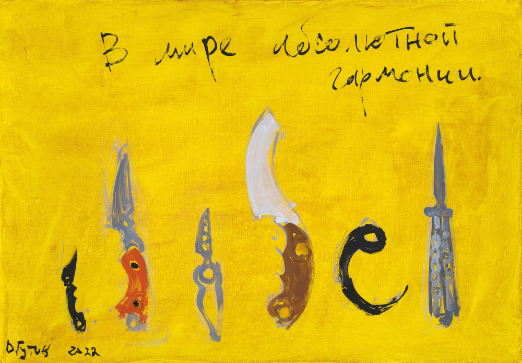 В мире абсолютной
гармонии.
Д Гутов 2022